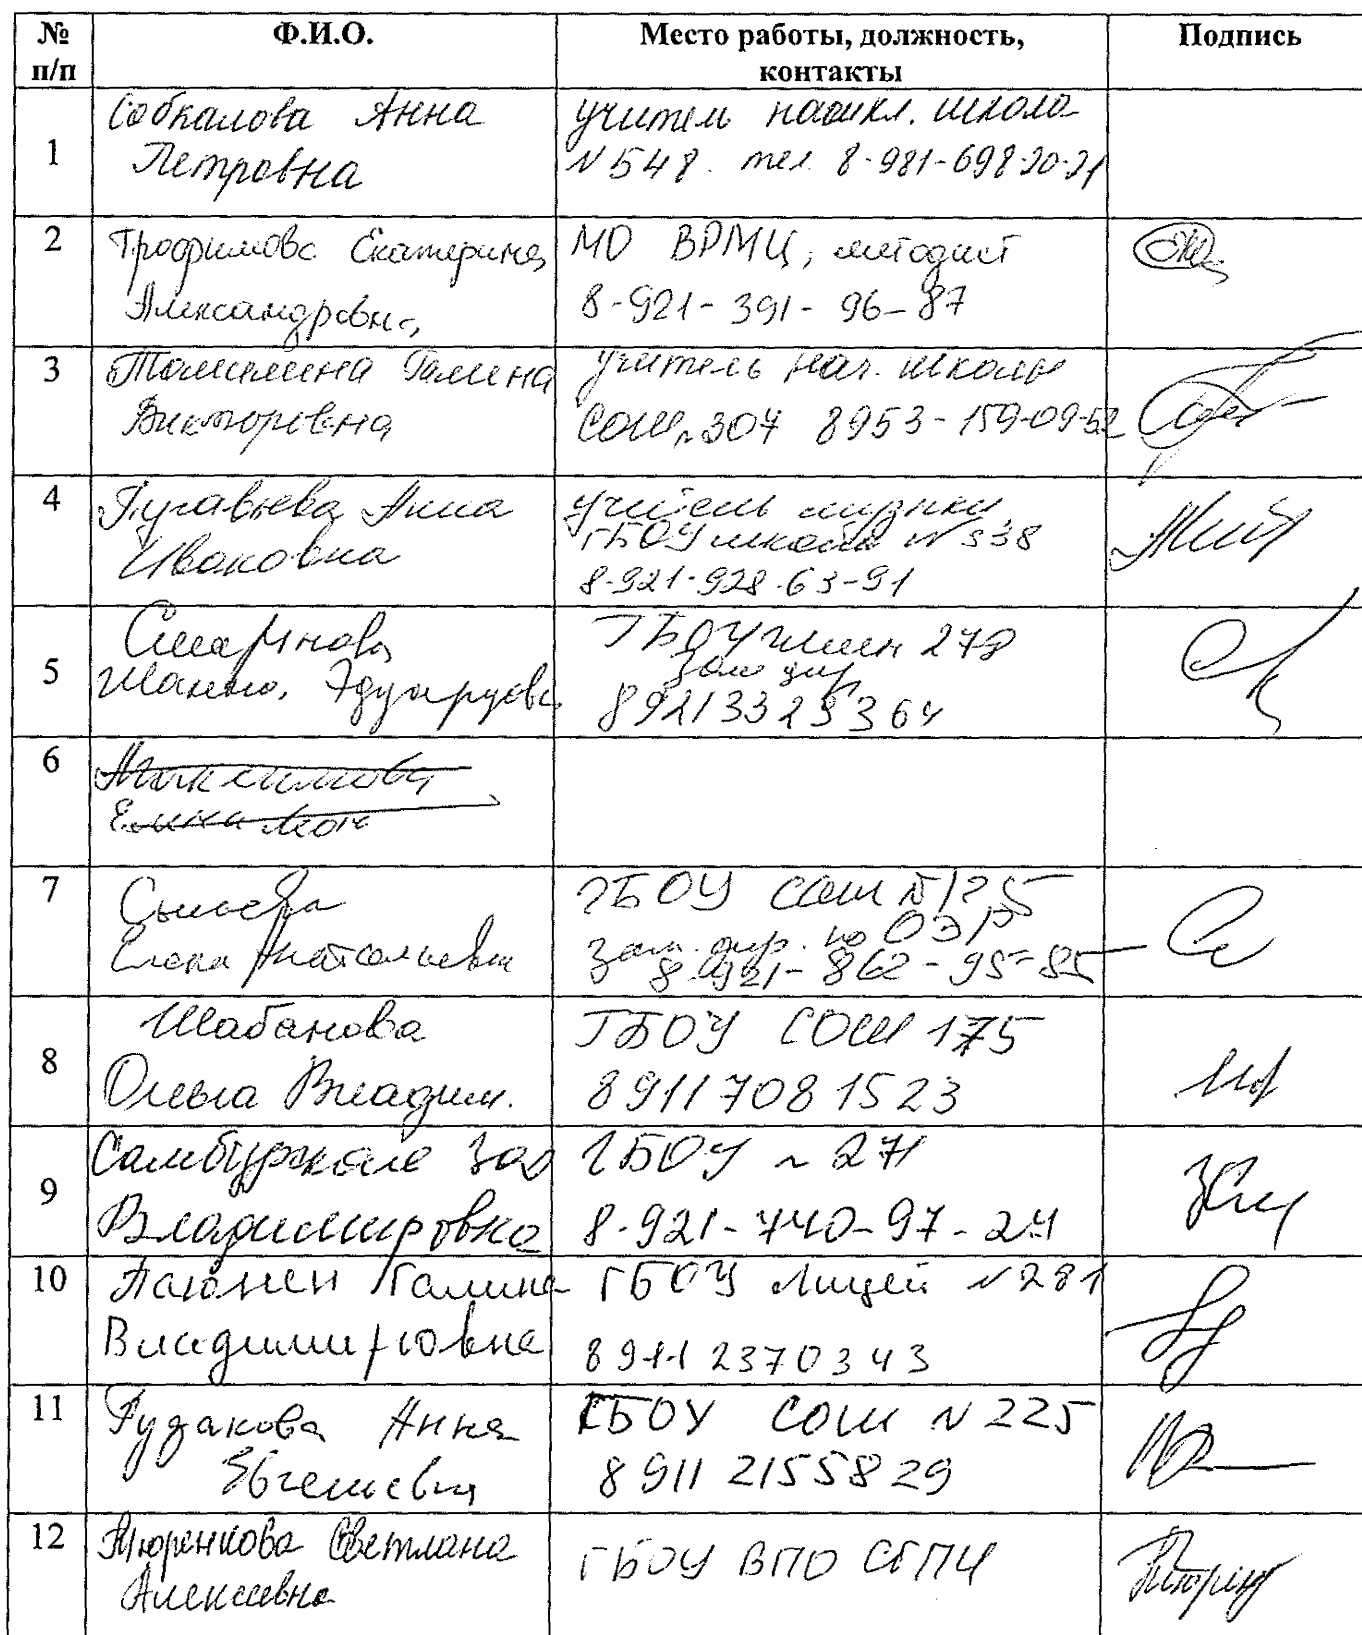 № п/п Ф.И.О. Место работы, должность, контакты Подпись
1
Собкалова Анна
Петровна
учитель нач.шкл. школа
N 548. тел. 8-981-698-20-21
2
Трофимова Екатерина
Александровна
МО ВРМЦ, методист
8-921-391-96-87
3
Галина
Викторовна
учитель нач. школы
СОШ 307 8953-159-09-52
4
Анна
Ивановна
учитель музыки
ГБОУ школа N 338
8-921-928-63-91
5
Смирнова
Жанна Эдуардовна
ГБОУ 278
зам дир
89213323364
6
Максимова
7
Елена Анатольевна
ГБОУ СОШ №125
зам. дир. по ОЭР
8-921-862-95-85
8
Шабанова
Ольга Владим.
ГБОУ СОШ 175
89117081523
9
Самбурская Зоя
Владимировна
ГБОУ N 271
8-921-740-97-24
10
Паюнен Галина
Владимировна
ГБОУ Лицей N 281
89112370343
11
Рудакова Анна
Евгеньевна
ГБОУ СОШ N 225
89112155829
12
Тюренкова Светлана
Алексеевна
ГБОУ ВПО